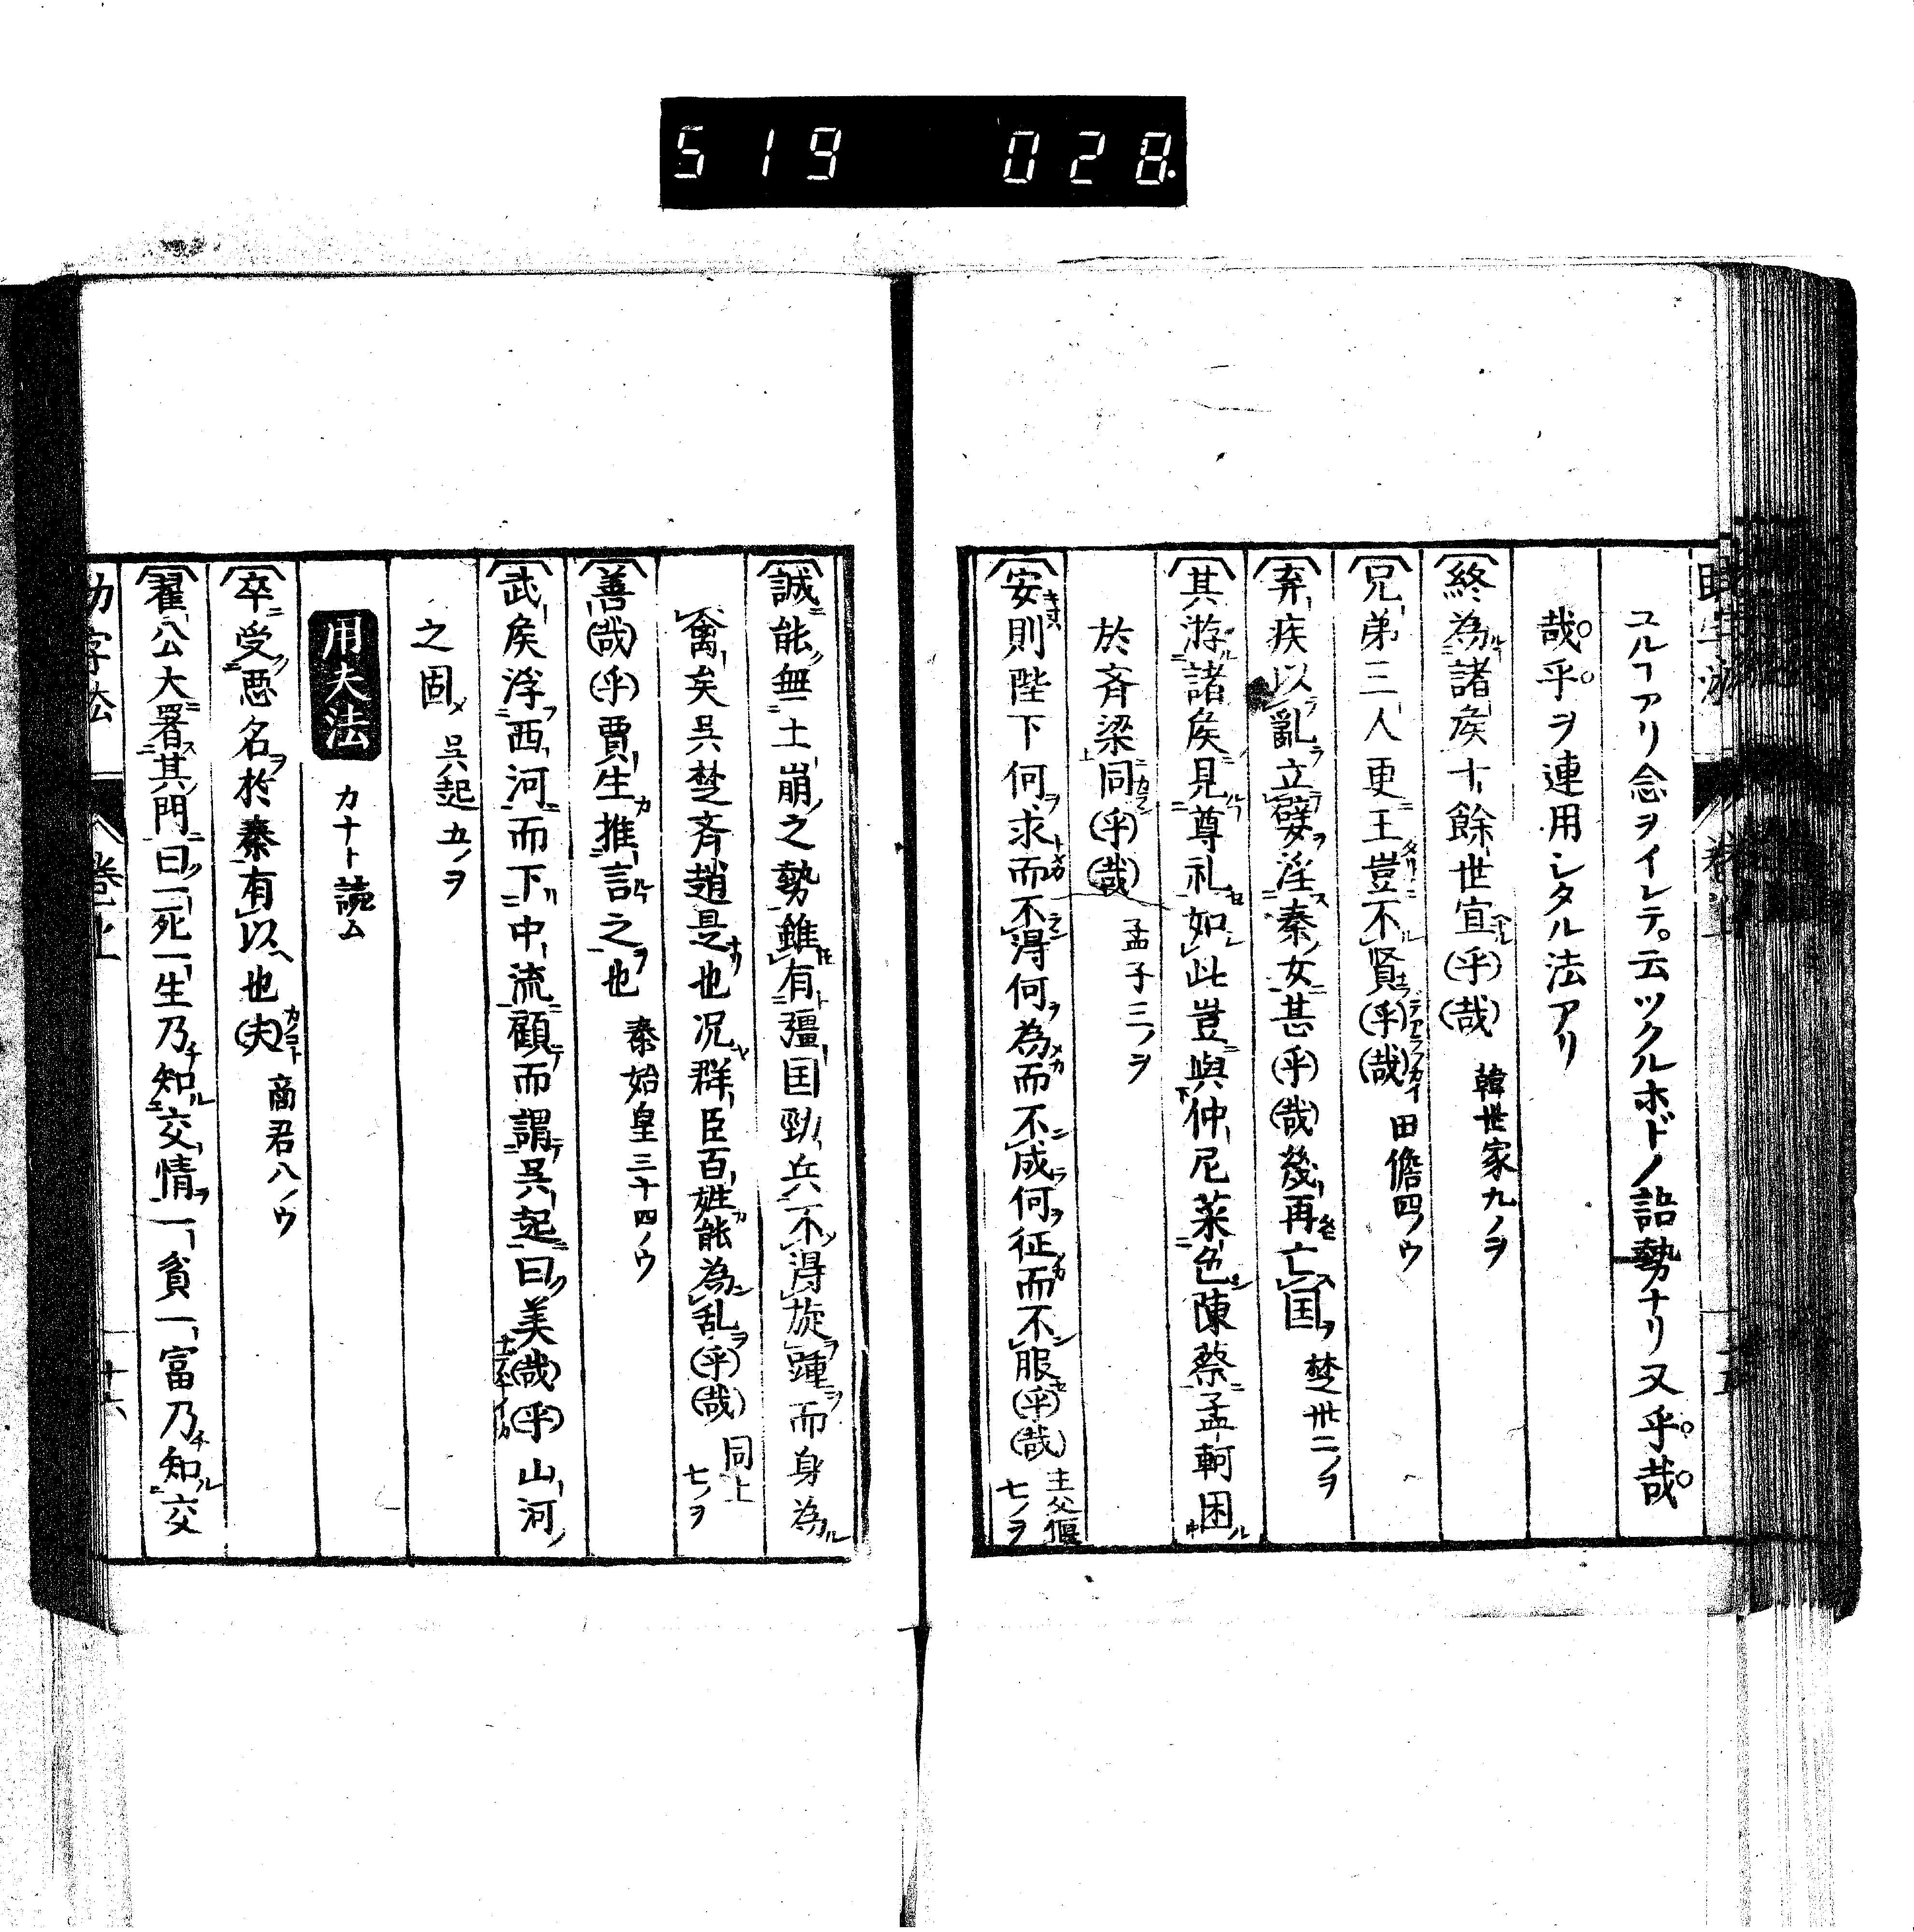 519 028
ユルヿアリ念ヲイレテ。云ツクルホドノ語勢ナリ又乎。哉。
哉。乎。ヲ連用シタル法アリ
終為諸矦十餘世宜(乎)(哉) 韓世家九ノヲ
兄弟三人更王豈不賢(乎)(哉) 田儋四ノウ
弃疾以亂立嬖淫秦女甚(乎)(哉)幾再亡国 楚卅二ノヲ
其游諸矦見尊礼如此豈與仲尼菜色陳蔡孟軻困
於斉梁同(乎)(哉) 孟子三ノヲ
安則陛下何求而不得何為而不成何征而不服(乎)(哉) 主父偃七ノヲ
誠能無土崩之勢雖有彊国勁兵不得旋踵而身為
禽矣呉楚斉趙是也况群臣百姓能為乱(乎)(哉) 同上七ノヲ
善(哉)(乎)賈生推言之也 秦始皇三十四ノウ
武矦浮西河而下中流顧而謂呉起曰美(哉)(乎)山河
之固 呉起五ノヲ
用夫法 カナト読ム
卒受悪名於秦有以也(夫) 商君八ノウ
翟公大署其門曰一死一生乃知交情一貧一富乃知交
巻上 十六